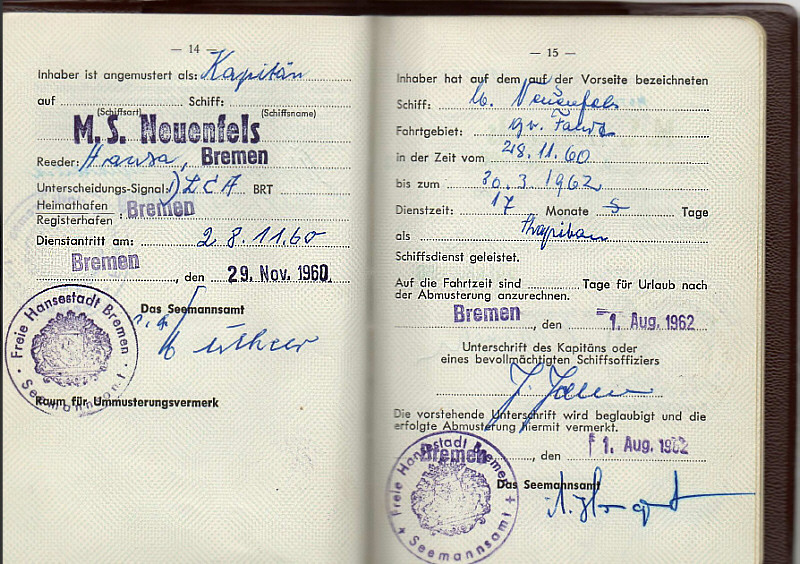 — 14 —
Inhaber ist angemustert als: Kapitän
auf Schiff:
(Schiffsart) (Schiffsname)
M.S. Neuenfels
Reeder: Hansa, Bremen
Unterscheidungs-Signal: DLCA BRT
Heimathafen
Registerhafen : Bremen
Dienstantritt am: 28.11.60
Bremen, den 29. Nov. 1960
Das Seemannsamt
Freie Hansestadt Bremen
Seemannsamt
Raum für Ummusterungsvermerk
— 15 —
Inhaber hat auf dem auf der Vorseite bezeichneten
Schiff: Neuenfels
Fahrtgebiet: gr. Fahrt
in der Zeit vom 28.11.60
bis zum 30.3.1962
Dienstzeit: 17 Monate 5 Tage
als Kapitän
Schiffsdienst geleistet.
Auf die Fahrtzeit sind Tage für Urlaub nach
der Abmusterung anzurechnen.
Bremen, den -1. Aug. 1962
Unterschrift des Kapitäns oder
eines bevollmächtigten Schiffsoffiziers
Die vorstehende Unterschrift wird beglaubigt und die
erfolgte Abmusterung hiermit vermerkt.
Bremen, den 1. Aug. 1962
Das Seemannsamt
Freie Hansestadt Bremen
Seemannsamt